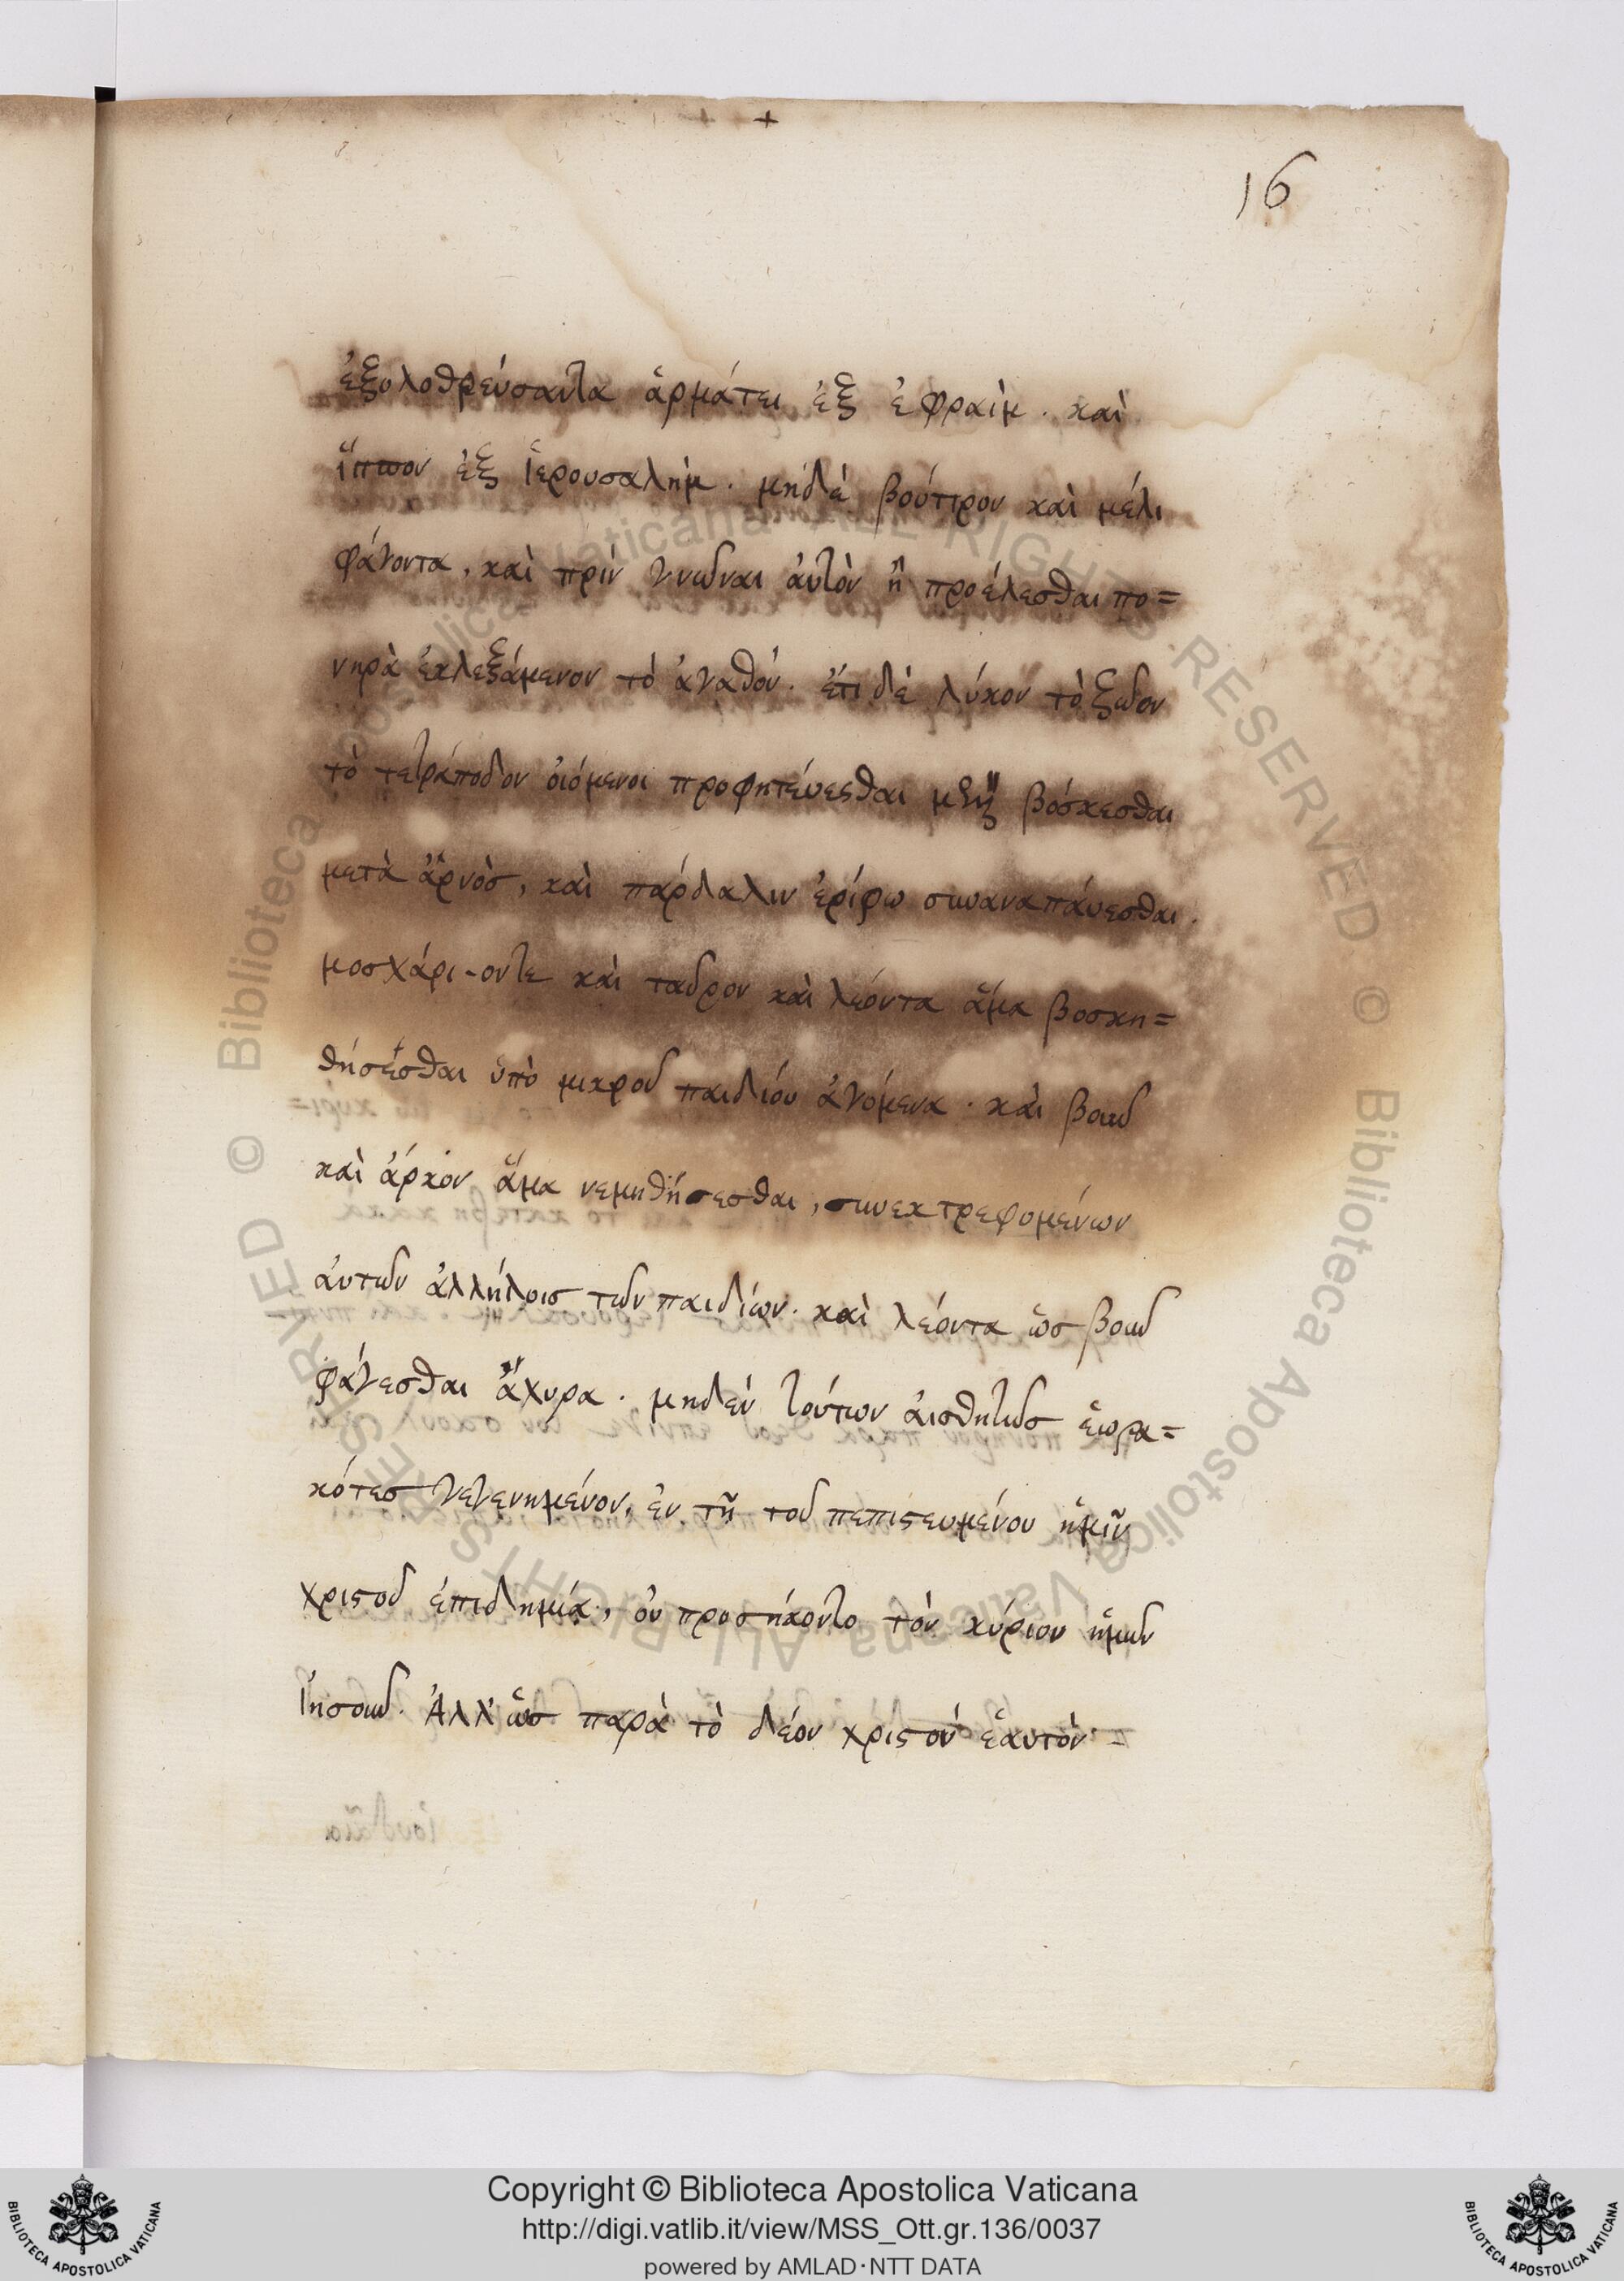 16
ἐξολοθρεύσαντα ἅρμάτει ἐξ ἐφραὶμ. καὶ
ἵππον ἐξ Ἱερουσαλὴμ. μηδὲ βούτιρον καὶ μέλι
φάγοντα, καὶ πρὶν γνῶναι ἀυτὸν ἢ προέλεσθαι πο=
νηρὰ ἐκλεξάμενον τὸ ἀγαθόν. ἔτι δὲ λύκον τὸ ζῶον
τὸ τετράποδον ὀιόμενοι προφητέυεσθαι βόσκεσθαι
μετὰ ἄρνὸσ, καὶ πάρδαλιν ἐρίφω συναναπάυεσθαι.
μοσχάρι-οντε καὶ ταῦρον καὶ λέοντα ἅμα βοσκη=
θήσέσθαι ὑπὸ μικροῦ παιδίου ἀγόμενα. καὶ βοῦν
καὶ ἀρκον ἅμα νεμηθήσεσθαι, συνεκτρεφομένων
ἀυτῶν ἀλλήλοισ τῶν παιδίων. καὶ λέοντα ὡσ βοῦν
φάγεσθαι ἄχυρα. μηδὲν τούτων ἀισθητῶσ ἑωρα=
κότεσ γεγενημένον, ἐν τῆ τοῦ πεπιστευμένου ἡμῖν
χριστοῦ ἐπιδημία, ὀυ προσήκοντο τὸν κύριον ἡμῶν
Ἰησοῦν. Ἀλλ' ὡσ παρὰ τὸ δέον χριστὸν ἑαυτὸν -
Copyright © Biblioteca Apostolica Vaticana
http://digi.vatlib.it/view/MSS_Ott.gr.136/0037
powered by AMLAD·NTT DATA
BIBLIOTECA APOSTOLICA VATICANA
BIBLIOTECA APOSTOLICA VATICANA